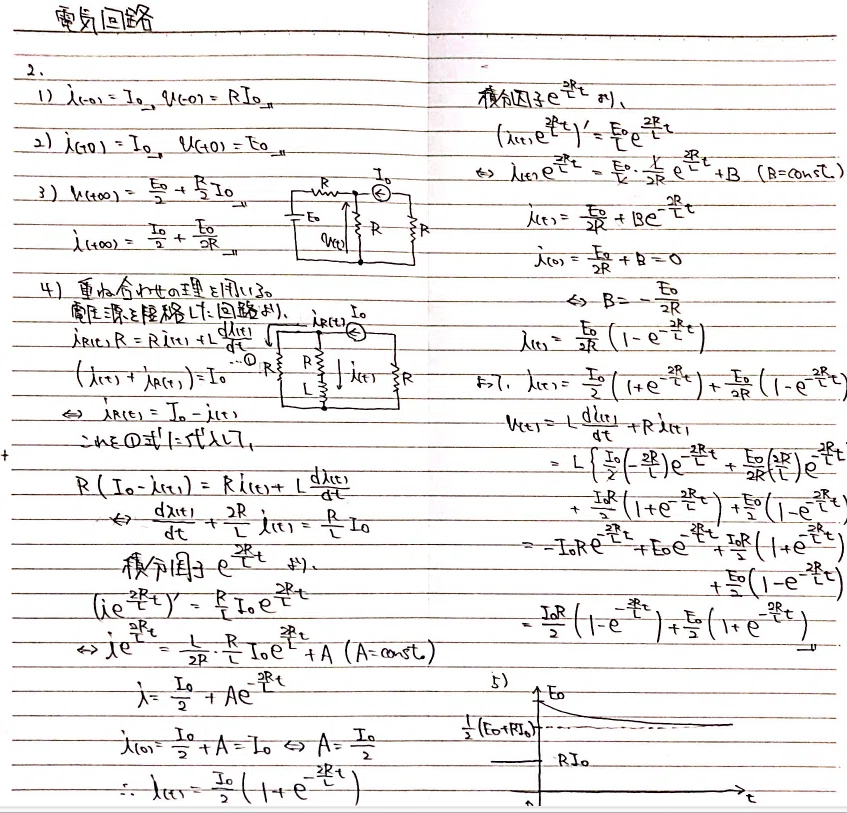 電気回路
2.
1) i(-0) = I₀, v(-0) = RI₀
2) i(+0) = I₀, v(+0) = E₀
3) v(+∞) = E₀/2 + R/2 I₀
i(+∞) = I₀/2 + E₀/2R
R I₀
E₀ v(t) R R
4) 重ね合わせの理を用いる。
電圧源を短絡した回路より、
i_R(t) R = R i(t) + L di(t)/dt …①
(i(t) + i_R(t)) = I₀
⇔ i_R(t) = I₀ - i(t)
これを①式に代入して、
i_R(t) I₀
R R L i(t) R
R(I₀ - i(t)) = R i(t) + L di(t)/dt
⇔ di(t)/dt + 2R/L i(t) = R/L I₀
積分因子 e^{2R/L t} より、
(ie^{2R/L t})' = R/L I₀e^{2R/L t}
⇔ ie^{2R/L t} = L/2R · R/L I₀e^{2R/L t} + A (A=const.)
i = I₀/2 + Ae^{-2R/L t}
i(0) = I₀/2 + A = I₀ ⇔ A = I₀/2
∴ i(t) = I₀/2 (1 + e^{-2R/L t})
積分因子 e^{2R/L t} より、
(i(t) e^{2R/L t})' = E₀/L e^{2R/L t}
⇔ i(t) e^{2R/L t} = E₀/L · L/2R e^{2R/L t} + B (B=const.)
i(t) = E₀/2R + Be^{-2R/L t}
i(0) = E₀/2R + B = 0
⇔ B = - E₀/2R
i(t) = E₀/2R (1 - e^{-2R/L t})
よって、i(t) = I₀/2 (1 + e^{-2R/L t}) + E₀/2R (1 - e^{-2R/L t})
v(t) = L di(t)/dt + R i(t)
= L { I₀/2 (-2R/L) e^{-2R/L t} + E₀/2R (2R/L) e^{-2R/L t}
+ I₀R/2 (1 + e^{-2R/L t}) + E₀/2 (1 - e^{-2R/L t})
= -I₀R e^{-2R/L t} + E₀e^{-2R/L t} + I₀R/2 (1 + e^{-2R/L t})
+ E₀/2 (1 - e^{-2R/L t})
= I₀R/2 (1 - e^{-2R/L t}) + E₀/2 (1 + e^{-2R/L t})
5)
E₀
1/2 (E₀+RI₀)
RI₀
t